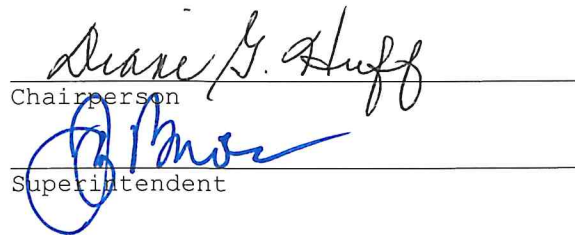 Diane G. Huff
Chairperson
Superintendent